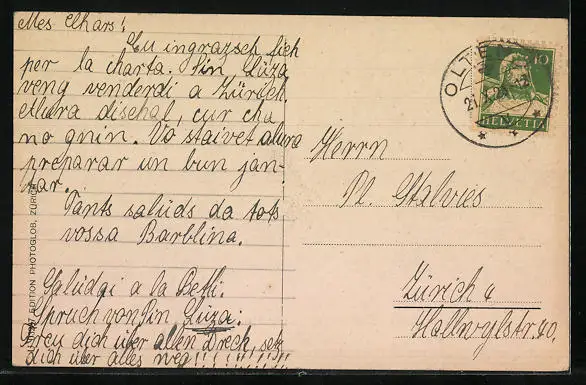 Mes chars!
Eu ingrazch fich
per la charta. Sin Luza
veng venderdi a Zürich.
dischal, cur cha
no gnin. Vo staivet alura
preparar un bun jan-
tar.
Tants salüds da tots
vossa Barblina.
Salüdai a la Betti.
Spruch von Sin Luza:
Freu dich über allen Dreck, setz
dich über alles weg!!!!!!!!
EDITION PHOTOGLOB, ZÜRICH
OLTEN
21.
HELVETIA
10
Herrn
Pl. Stalvies
Zürich 4
Hallwylstr. 40.